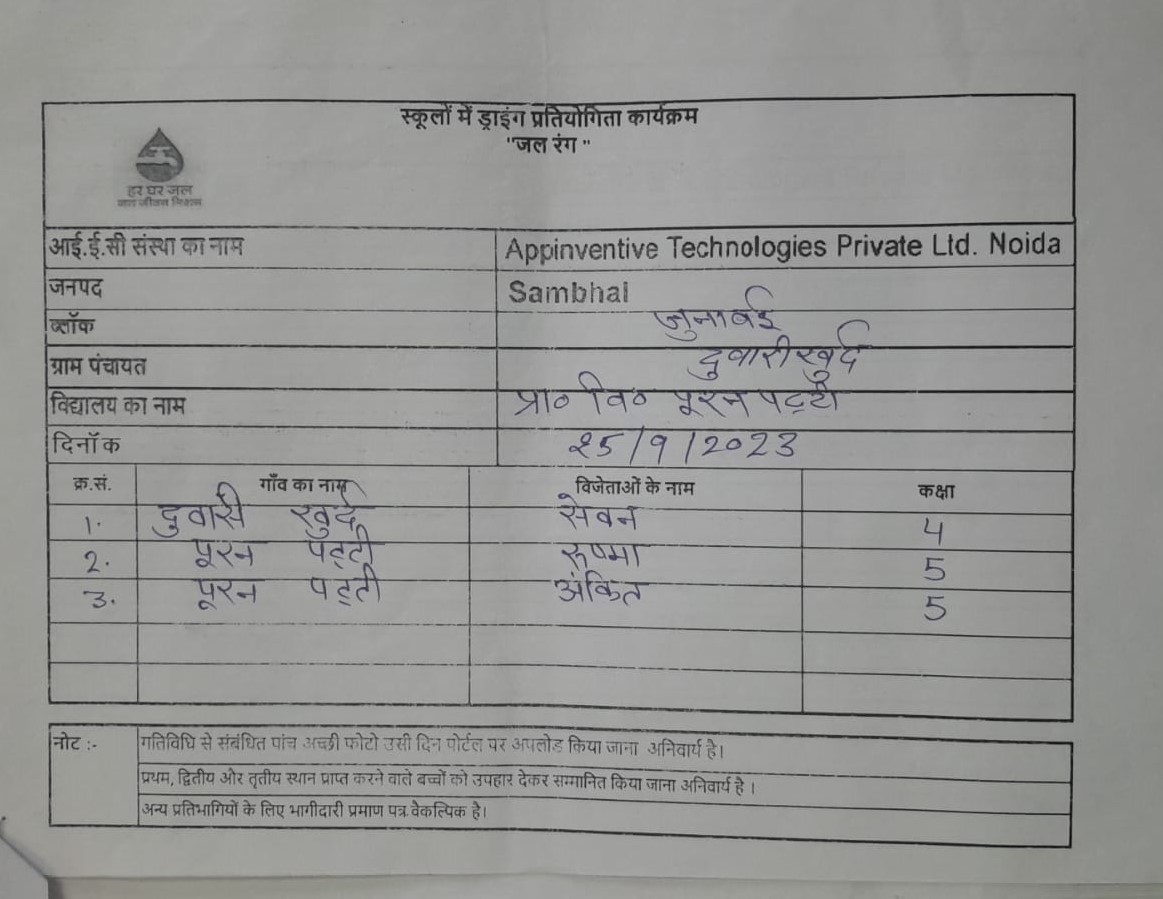 स्कूलों में ड्राइंग प्रतियोगिता कार्यक्रम
"जल रंग "
हर घर जल
जल जीवन मिशन
आई.ई.सी संस्था का नाम Appinventive Technologies Private Ltd. Noida
जनपद Sambhal
ब्लॉक जुनावई
ग्राम पंचायत दुवारी खुर्द
विद्यालय का नाम प्रा० वि० पूरन पट्टी
दिनॉक 25/9/2023
क्र.सं. गाँव का नाम विजेताओं के नाम कक्षा
1. दुवारी खुर्द सेवन 4
2. पूरन पट्टी रुष्मा 5
3. पूरन पट्टी अंकित 5
नोट :- गतिविधि से संबंधित पांच अच्छी फोटो उसी दिन पोर्टल पर अपलोड किया जाना अनिवार्य है।
प्रथम, द्वितीय और तृतीय स्थान प्राप्त करने वाले बच्चों को उपहार देकर सम्मानित किया जाना अनिवार्य है ।
अन्य प्रतिभागियों के लिए भागीदारी प्रमाण पत्र वैकल्पिक है।